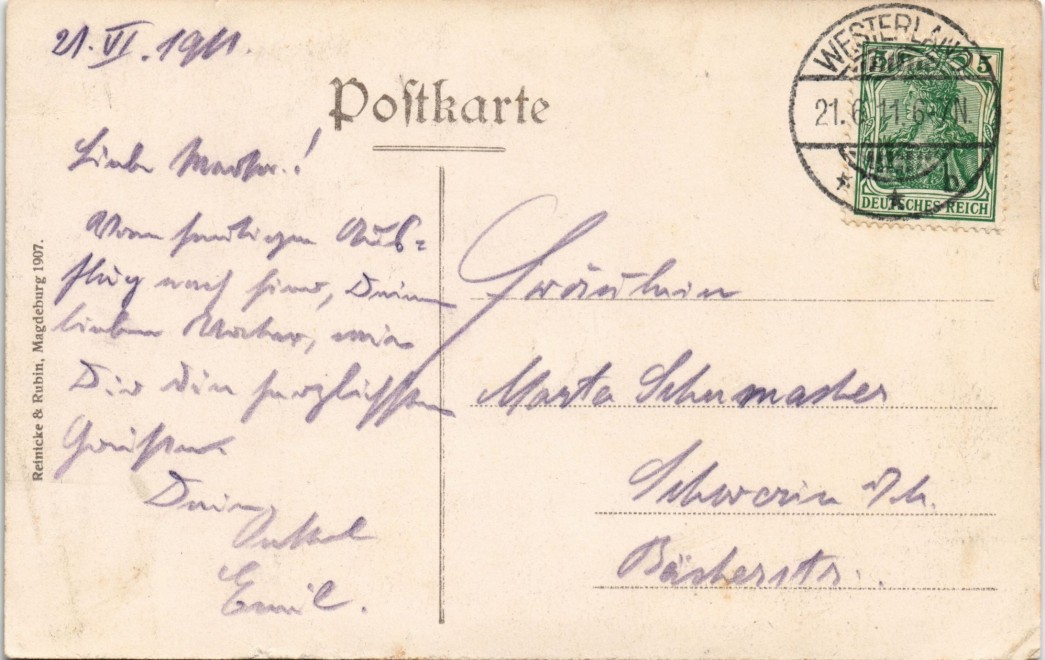 21. VI. 1911.
Postkarte
Liebe Martha!
Vom heutigen Aus=
flug nach hier,
lieben
Dir die herzlichsten
Grüsse
Dein
Onkel
Emil.
Fräulein
Marta Schumacher
Schwerin i/M.
Bäckerstr.
WESTERLAND
21.6.11.6-7N.
b
5
DEUTSCHES REICH
Reinicke & Rubin, Magdeburg 1907.